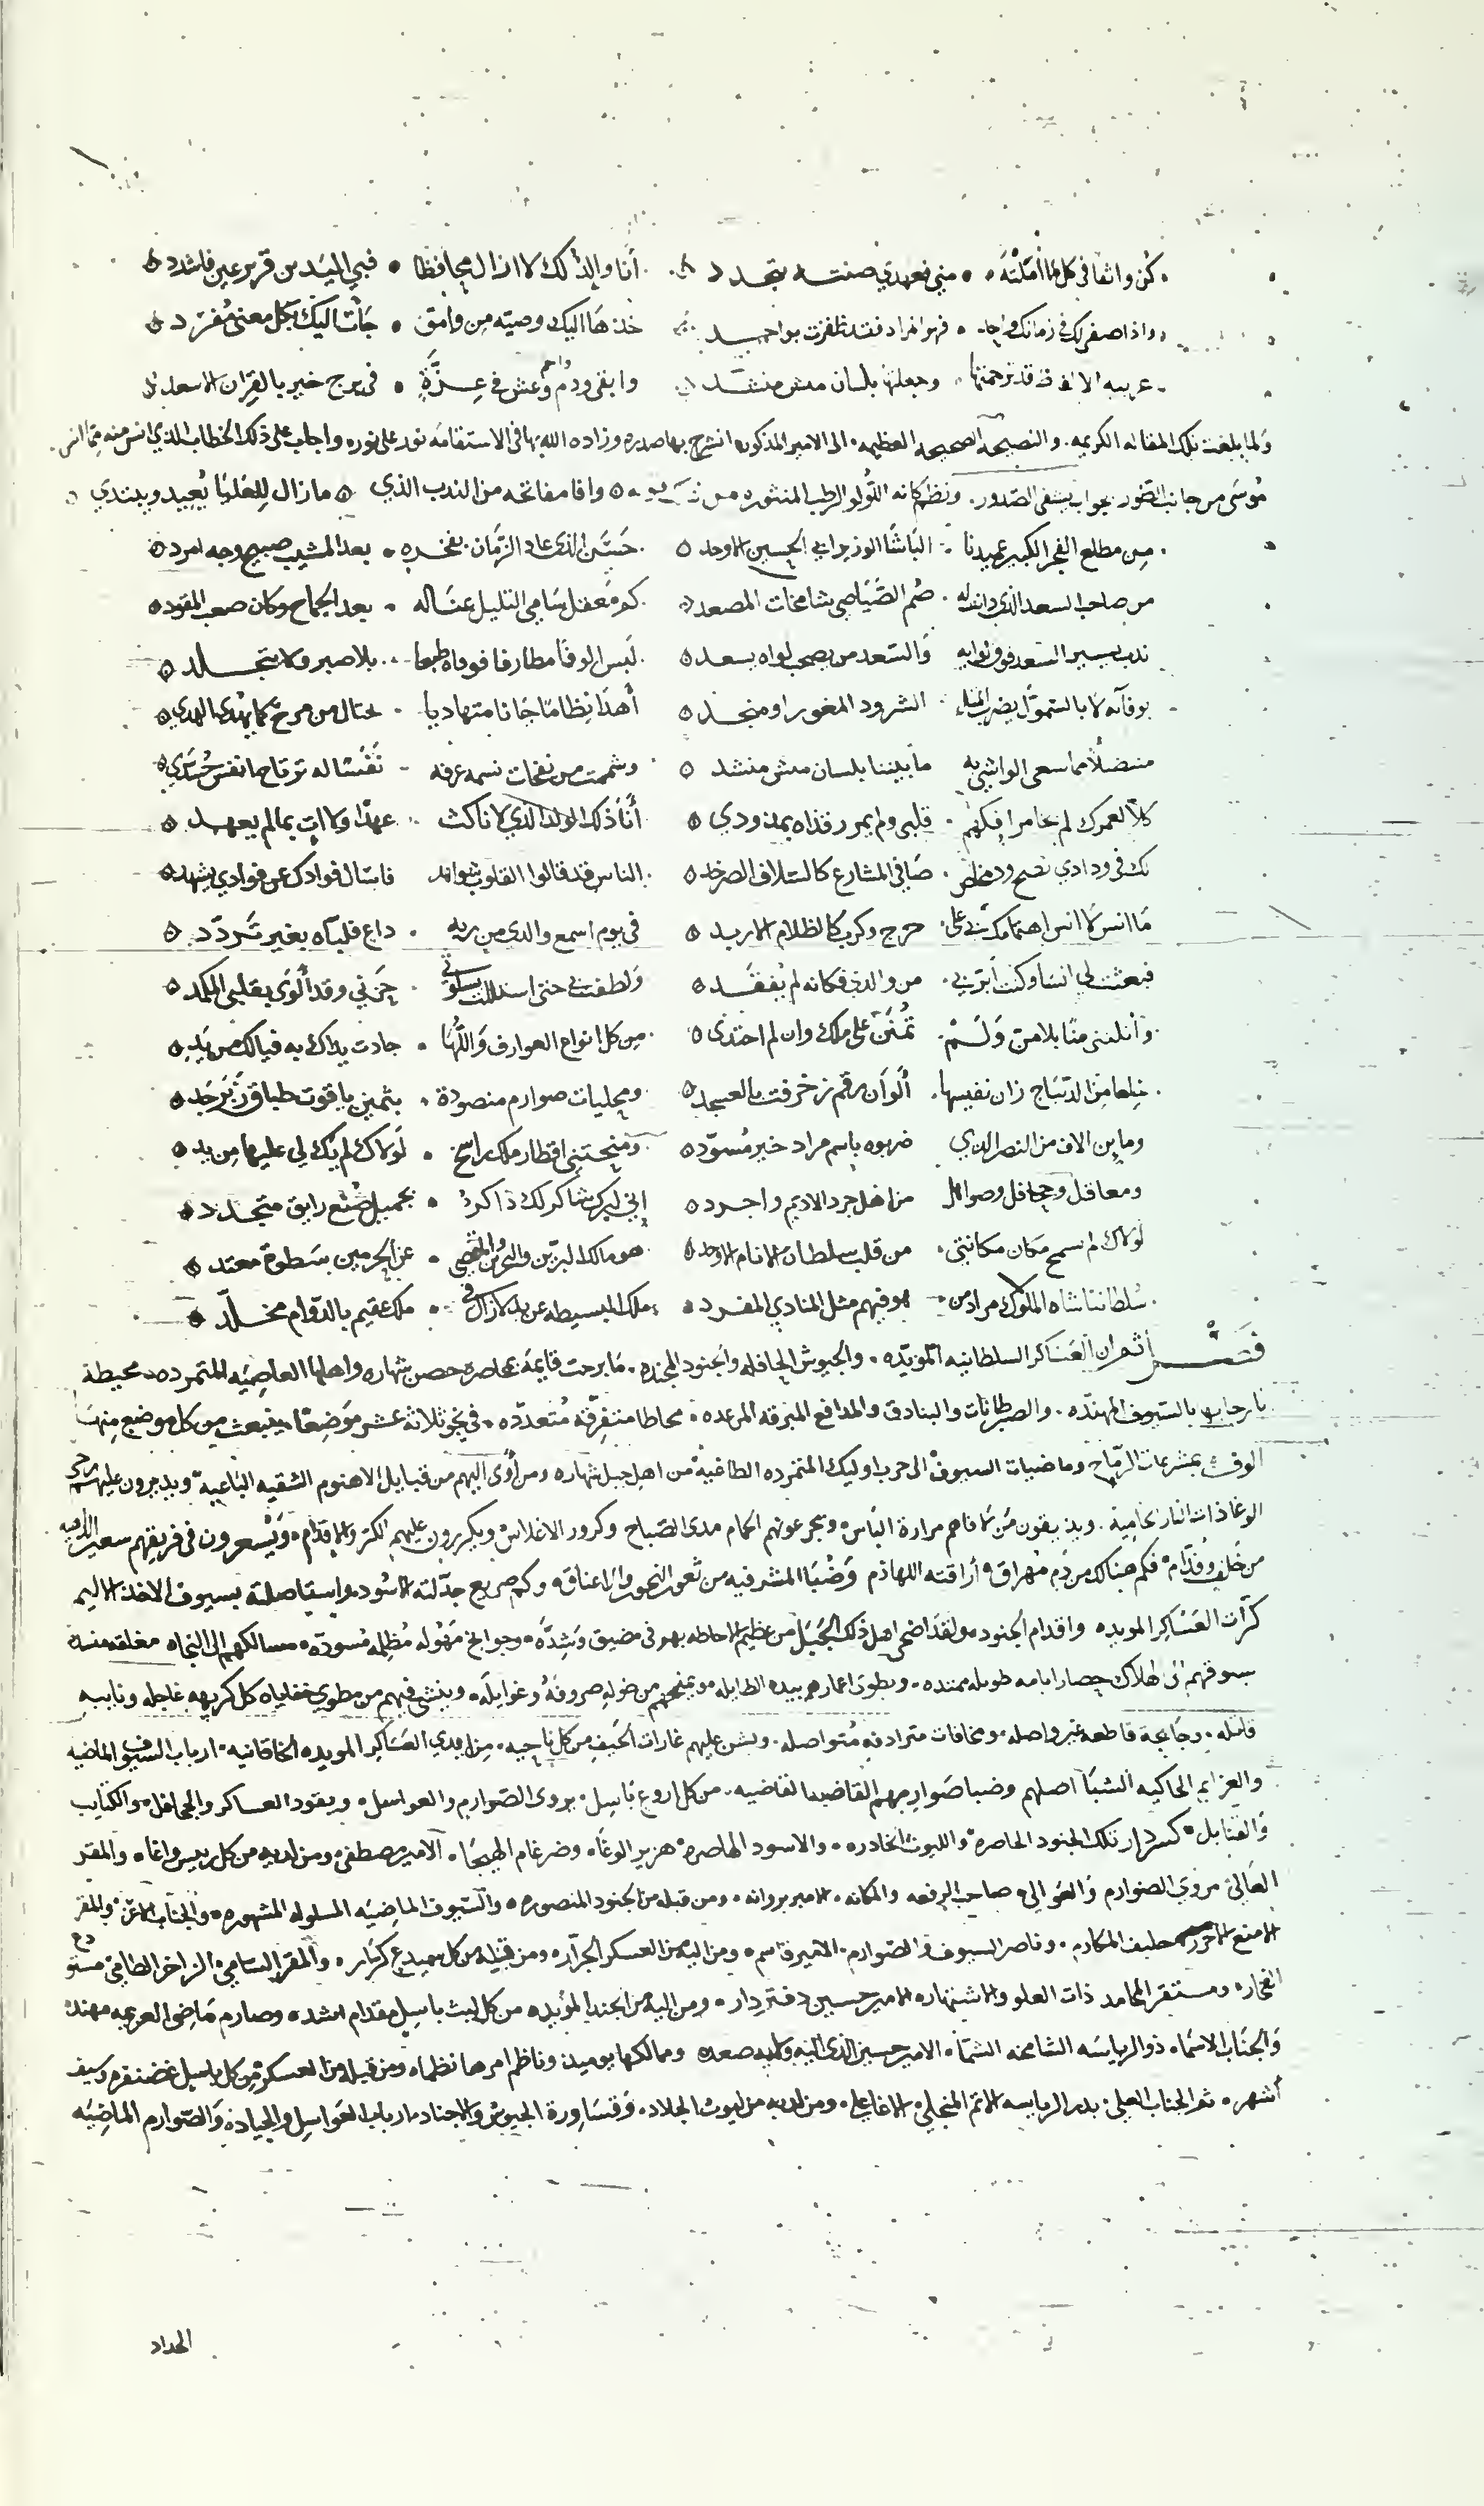 كن واثقا في كل ما أملته منى فعهدي صنته بتجدد أنا والذلك لا ازال محافظا فبي اليد من قرير عين فاشدد
واذا صفى لك في زمانك واحد فهو المراد فقد ظفرت بواحد خذها اليك وصية من وامق جأت اليك بكل معنى مفرد
عربية الالفاظ قد ترجمتها وجعلتها بلسان منش منشد وابقى ودم واسلم وعش في عزة في برج خير بالقران الاسعد
ولما بلغت تلك المقاله الكريمه والنصيحه الصحيحه العظيمه الى الامير المذكور انشرح بها صدره وزاده الله بها في الاستقامه نور على نوره واجاب على ذلك الخطاب الذي انس منه مما انس
موسى من جانب الطور بجواب يشفى الصدور ونظم كانه اللولو الرطب المنثور وافا مفاتحه من الندب الذي ما زال للعليا يعيد ويبتدي
من مطلع الفجر الكبير عميدنا الباشا الوزير ابي الحسين الاوحد حسن الذي عاد الزمان بفخره بعد المشيب صبيح وجه امرد
من صاحب السعد الذي دانت له صم الصياصي شامخات المصعد كم معقل سامي التليل عنا له بعد الجماح وكان صعب المقود
ندب يسير السعد فوق لوايه والسعد من يصحب لواه يسعد لبس الوفا مطارفا فوفاه طبعا بلا صبر ولا بتجلد
بوفآئه لا بالسموأل يضرب المثل الشرود المغور او منجد أهدا نظاما جانا متهاديا يختال من مرح كما يهدى الهدي
متنصلا مما سعى الواشي به ما بيننا بلسان منش منشد وشممت من نفحات نسمه عرفه نفسا له ترتاح انفس حسدي
كلا لعمرك لم يخامر افكهم قلبي ولم يمرر قذاه بمذودي أنا ذلك الولد الذي لا ناكث عهدا ولا ات بما لم يعهد
لك في ودادي نصح ود صافي المشارع كالسلاف الصرخد الناس قد قالوا القلوب شواهد فاسال فوادك عن فوادي يشهد
ما انس لا انس اهتمامك بي على حرج وكرب كالظلام الاربد في يوم اسمع والدي من ربه داع فلباه بغير تردد
فبعثت لي انسا وكنت أبر بي من والدي فكانه لم يفقد ولطفت بي حتى سلوتي حزني وقد ألوى بقلبي المكمد
وأنلتني منا بلا من ولم تمنن على ملك وان لم احتذى من كل انواع العوارف واللها جادت يداك به فيالك من يد
خلعا من الديباج زان نفيسها ألوان رقم زخرفت بالعسجد ومحليات صوارم منصودة بثمين ياقوت طباق زبرجد
وماين الاف من النصر الذي ضربوه باسم مراد خير مسود ومنحتني اقطار ملك راسخ لولاك لم يك لي عليها من يد
ومعاقل وجحافل وصواهل من اهل جرد الاديم واجرد اني لبرك شاكر لك ذاكر بجميل صنع رايق متجدد
لولاك لم اسمح مكان مكانتي من قلب سلطان الانام الاوحد هو مالك البرين والبحرين والمحمي عن الحرمين سطوة معتد
سلطاننا شاه الملوك مراد من هو فيهم مثل المنادي المفرد ملك البسيطه عن يد لا زال في ملك عقيم بالدوام مخلد
فصل ثم ان العساكر السلطانيه المؤيده والجيوش الحافله والجنود المجنده ما برحت قايمة بمحاصرة حصن شهاره واهلها العاصيه المتمرده محيطة
بارجايها بالسيوف المهنده والضربزانات والبنادق والمدافع المبرقه المرعده محاطا متفرقه متعدده في نحو ثلاثة عشر موضعا ينبعث من كل موضع منها
الوف بمشرعات الرماح وماضيات السيوف الى حرب اوليك المتمرده الطاغية من اهل جبل شهاره ومن أوى اليهم من قبايل الاهنوم الشقيه الباغية ويديرون عليهم رحى
الوغا ذات النار الحامية ويذيقون من لاقاهم مرارة الباس ويجرعونهم الحمام مدى الصباح وكرور الاغلاس ويكررون عليهم الكر والاقدام ويسعرون في فريقهم سعير
من خلف وقدام فكم هنالك من دم مهراق أراقته اللهاذم وضبا المشرفيه من ثغور النحور والاعناق وكم صريع جدلته الاسود واستاصلته بسيوف الاخذ الاليم
كرات العساكر المويده واقدام الجنود ولقد اضحى اهل ذلك الجبل من عظيم الاحاطه بهم في مضيق وشده وجوايح مهوله مظلمه مسودة مسالكهم الى النجاه مغلقه منسده
يسوقهم الى الهلاك حصار ايامه طويله ممتده ويطوى اعمارهم بيده الطايله ويمنحهم من هوله صروفه وغوايله وينشي فيهم من مطوي خفاياه كل كريهه عاجله ونايبه
قاتله ومجاعة قاطعة غير واصله ومخافات مترادفه متواصله وشن عليهم غارات الحيف من كل ناحيه من ايدي العساكر المويده الخاقانيه ارباب السيوف الماضيه
والعزايم الحاكيه الشبا اصلهم وضبا صوارمهم القاضيه من كل اروع باسل يروى الصوارم والعواسل ويقود العساكر والجحافل والكتايب
والقنابل كسردار تلك الجنود الحاصره والليوث الخادره والاسود الهاصره هزبر الوغاه وضرغام الهيجا الامير مصطفى ومن لديه من كل رييس واغا والمقر
العالي مروي الصوارم والعوالي صاحب الرفعه والمكانه الامير پروانه ومن قبله من الجنود المنصوره والسيوف الماضيه المسلوله المشهوره والجناب الاعز والمقر
الامنع الاحرز حليف المكارم وناصر السيوف والصوارم الامير قاسم ومن اليه من العسكر الجرار ومن قبيله من كل سميدع كرار والمقر السامي الزاخر الطامي مستودع
الفخار ومستقر المحامد ذات العلو والاشتهار الامير حسين دفتردار ومن اليه من الجند المؤيد من كل ليث باسل مقدام اشد وصارم ماضي العزيمه مهند
والجناب الاسماء ذو الرياسه الشامخه الشماء الامير حسين الذي اليه ولايه صعده وممالكها يوميذ وناظم امرها نظماه ومن قبيله من العسكر من كل باسل غضنفر وسيف
أشهر ثم الجناب العلي بدر الرياسه الاتم المنجلي الاغا علي ومن لديه من ليوث الجلاد وقساورة الجيوش والاجناد ارباب العواسل والجياد والصوارم الماضيه
الحداد